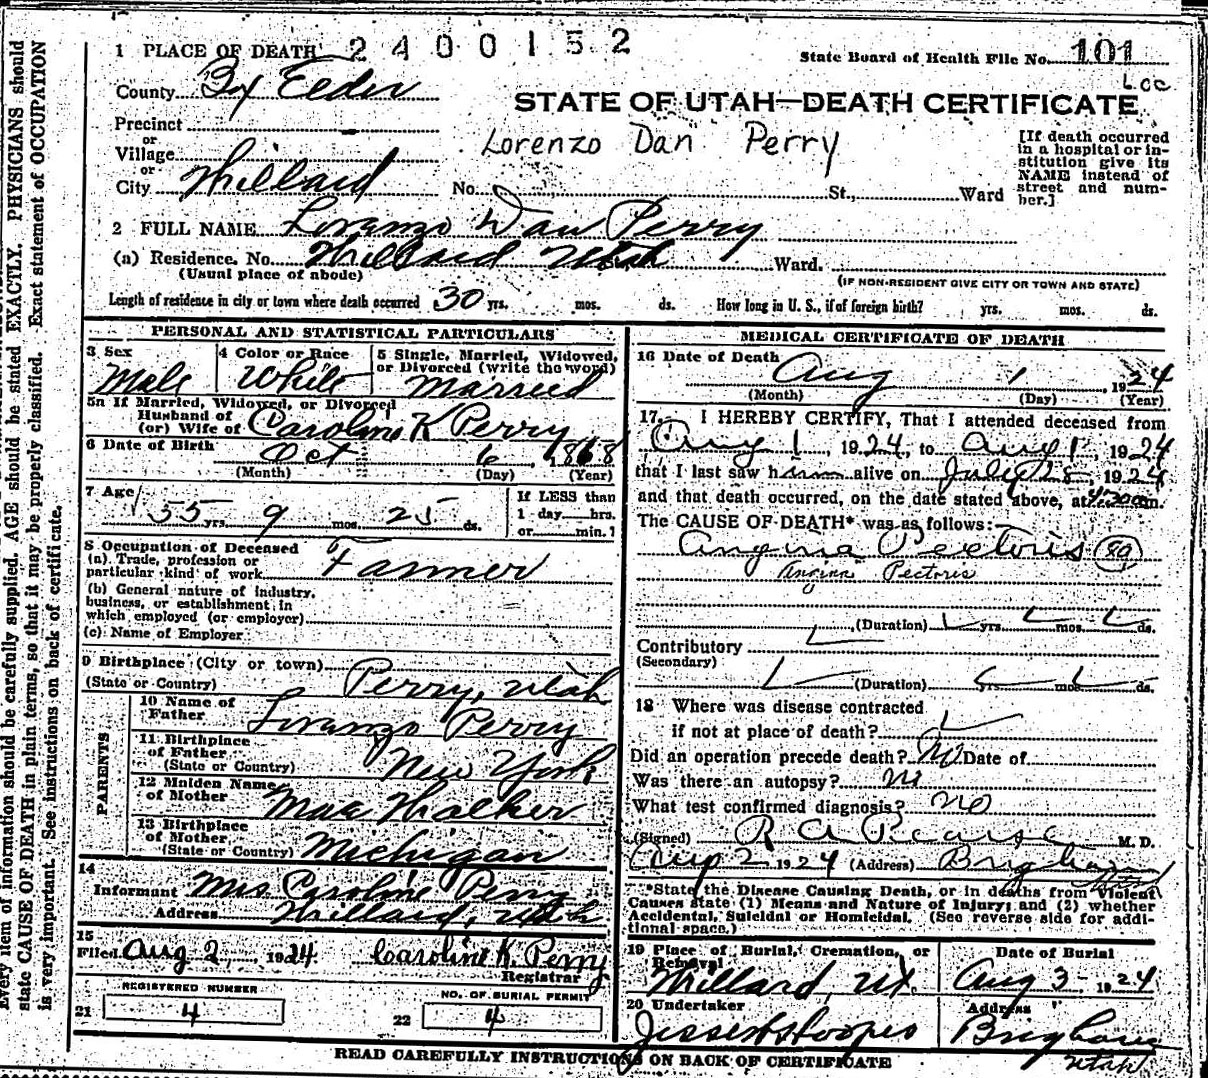 1 PLACE OF DEATH 2400152
State Board of Health File No. 101
County Box Elder
Loc
STATE OF UTAH—DEATH CERTIFICATE
Precinct
or
Village
or
City Willard No. St., Ward
Lorenzo Dan Perry
[If death occurred
in a hospital or in-
stitution give its
NAME instead of
street and num-
ber.]
2 FULL NAME Loranzo Dan Perry
(a) Residence. No. Willard Utah Ward.
(Usual place of abode)
(IF NON-RESIDENT GIVE CITY OR TOWN AND STATE)
Length of residence in city or town where death occurred 30 yrs. mos. ds. How long in U. S., if of foreign birth? yrs. mos. ds.
PERSONAL AND STATISTICAL PARTICULARS
3 Sex
Male
4 Color or Race
White
5 Single, Married, Widowed,
or Divorced (write the word)
Married
5a If Married, Widowed, or Divorced
Husband of
(or) Wife of Caroline K Perry
6 Date of Birth Oct 6, 1868
(Month) (Day) (Year)
7 Age 55 yrs. 9 mos. 25 ds.
If LESS than
1 day hrs.
or min.
8 Occupation of Deceased
(a) Trade, profession or
particular kind of work Farmer
(b) General nature of industry,
business, or establishment in
which employed (or employer)
(c) Name of Employer
9 Birthplace (City or town)
(State or Country) Perry, Utah
PARENTS
10 Name of
Father Loranzo Perry
11 Birthplace
of Father
(State or Country) New York
12 Maiden Name
of Mother Mae Walker
13 Birthplace
of Mother
(State or Country) Michigan
14
Informant Mrs Caroline Perry
Address Willard, Utah
15
Filed Aug 2, 1924 Caroline K. Perry
Registrar
REGISTERED NUMBER
21 4
NO. OF BURIAL PERMIT
22 4
MEDICAL CERTIFICATE OF DEATH
16 Date of Death
Aug 1, 1924
(Month) (Day) (Year)
17. I HEREBY CERTIFY, That I attended deceased from
Aug 1, 1924, to Aug 1, 1924
that I last saw him alive on July 28, 1924
and that death occurred, on the date stated above, at m.
The CAUSE OF DEATH* was as follows:
Angina Pectoris 89
Angina Pectoris
(Duration) yrs. mos. ds.
Contributory
(Secondary)
(Duration) yrs. mos. ds.
18 Where was disease contracted
if not at place of death?
Did an operation precede death? No Date of
Was there an autopsy? no
What test confirmed diagnosis? no
(Signed) R A Pearse M. D.
Aug 2 1924 (Address) Brigham
*State the Disease Causing Death, or in deaths from Violent
Causes state (1) Means and Nature of Injury; and (2) whether
Accidental, Suicidal or Homicidal. (See reverse side for addi-
tional space.)
19 Place of Burial, Cremation, or
Removal
Willard, Ut.
Date of Burial
Aug 3 - 1924
20 Undertaker
Address
Brigham
Utah
READ CAREFULLY INSTRUCTIONS ON BACK OF CERTIFICATE
Every item of information should be carefully supplied. AGE should be stated EXACTLY. PHYSICIANS should
state CAUSE OF DEATH in plain terms, so that it may be properly classified. Exact statement of OCCUPATION
is very important. See instructions on back of certificate.